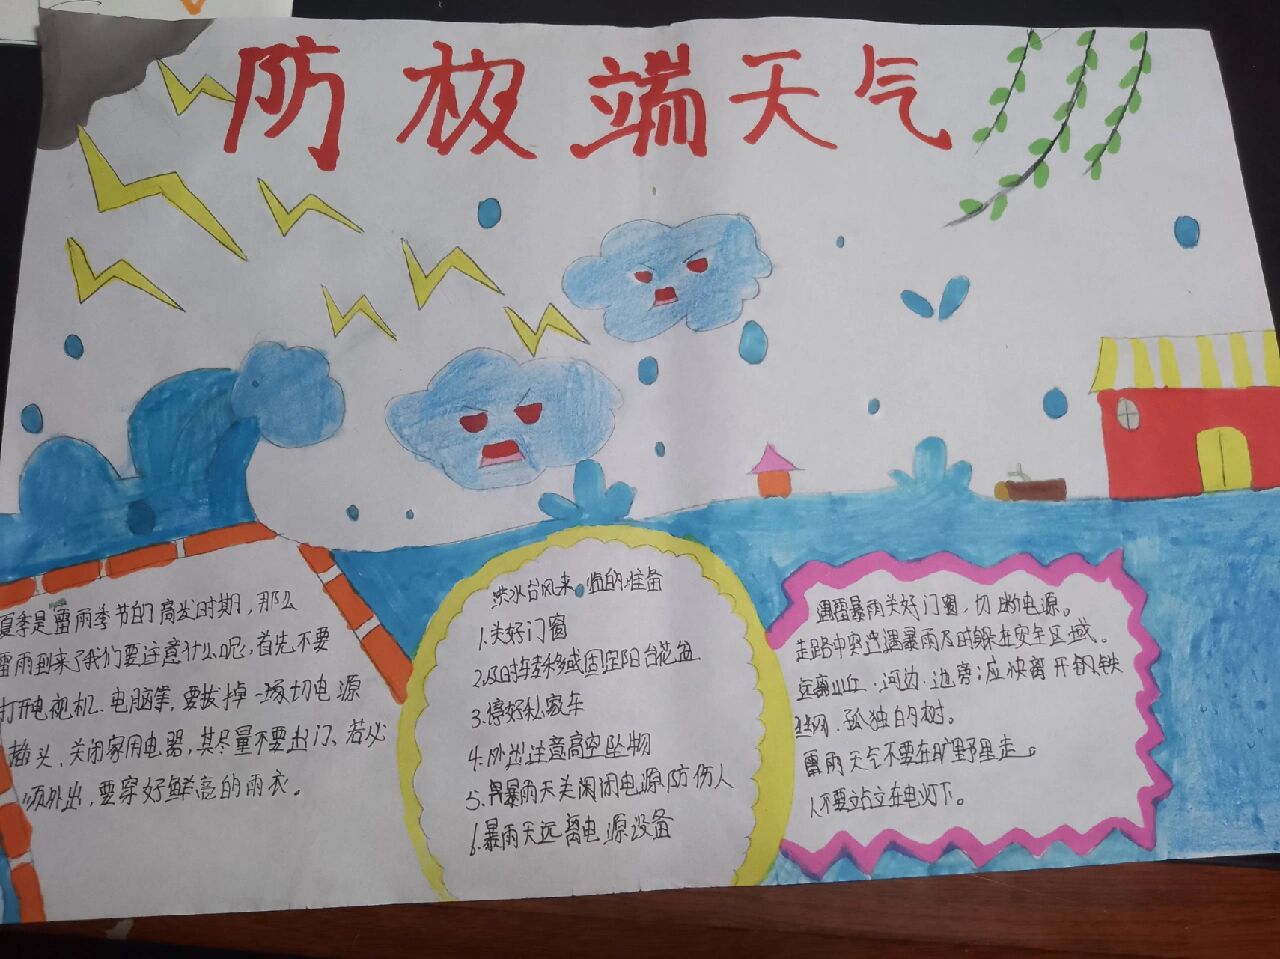 防极端天气
夏季是雷雨季节的高发时期，那么
雷雨到来了我们要注意什么呢，首先不要
打开电视机、电脑等，要拔掉一切电源
插头、关闭家用电器，其尽量不要出门、若必
须外出，要穿好鲜亮的雨衣。
洪水台风来 的准备
1.关好门窗
2.及时转移或固定阳台花盆
3.停好私家车
4.外出注意高空坠物
5.旱暴雨天关闲闭电源防伤人
6.暴雨天远离电源设备
遇雷暴雨关好门窗，切断电源。
走路中突遭遇暴雨及时躲在安全区域。
远离山丘、河边、边旁；应快离开钢铁
丝网、孤独的树。
雷雨天气不要在旷野里走。
人不要站立在电灯下。